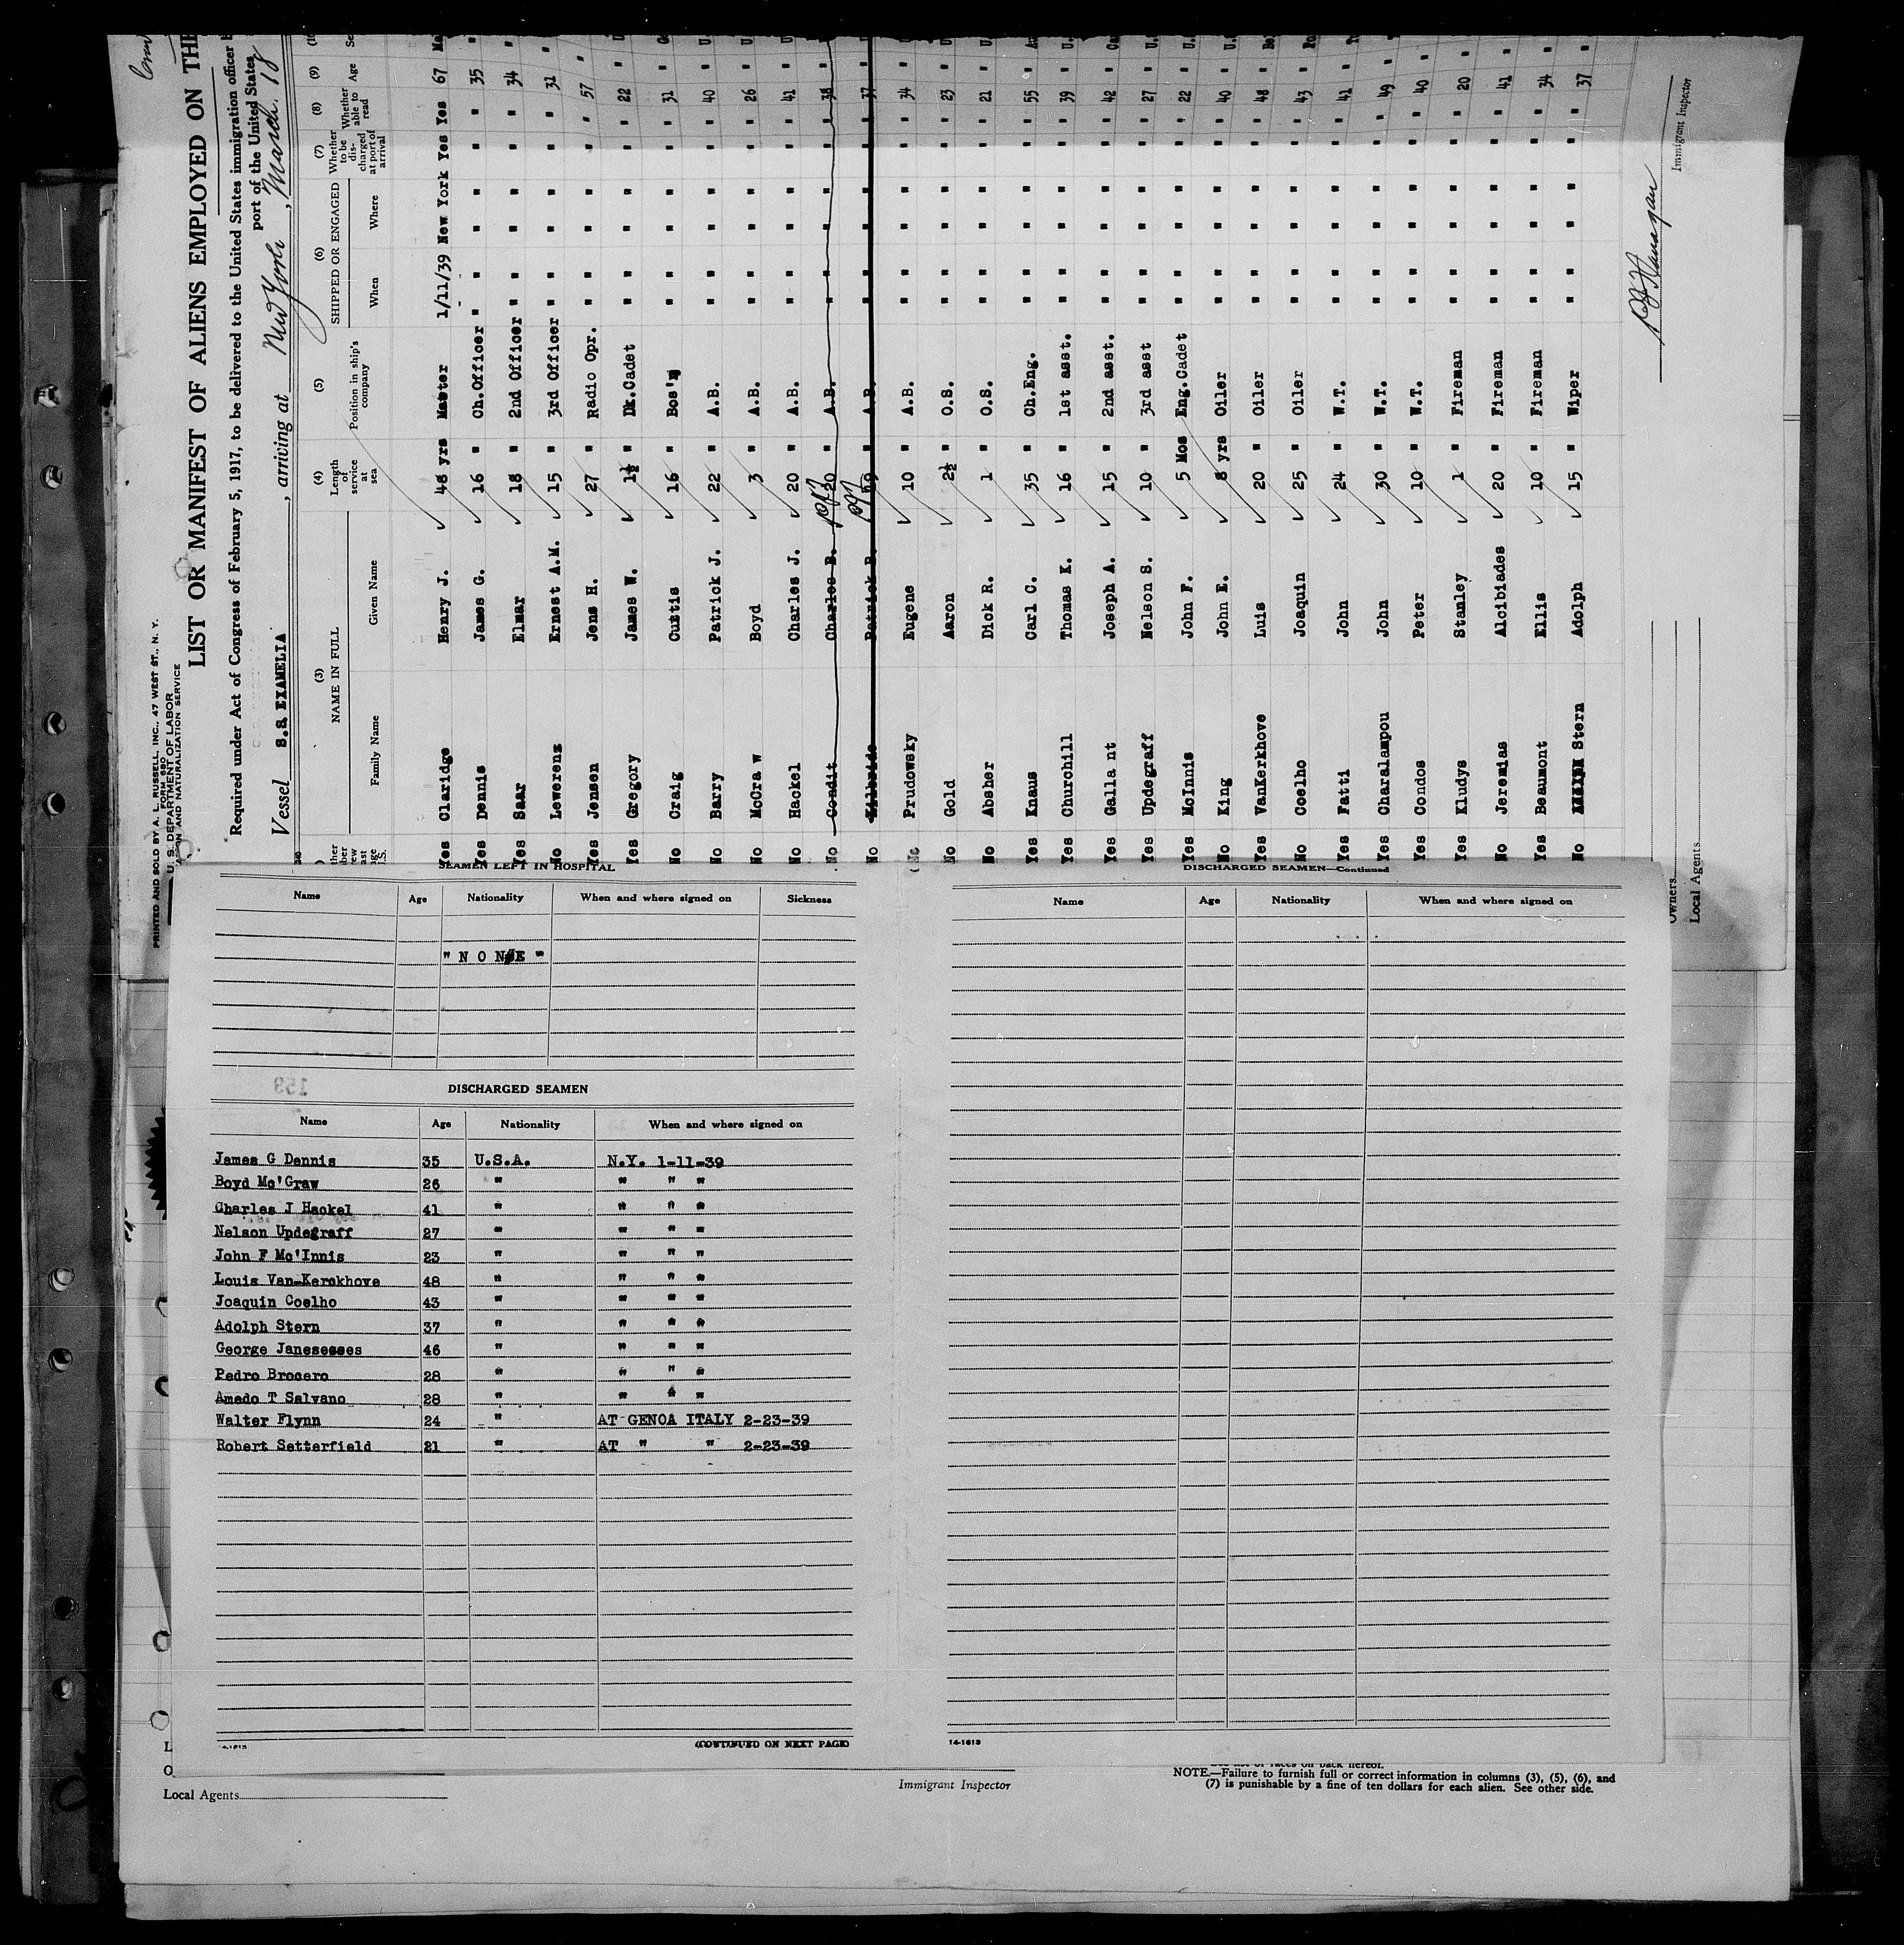 PRINTED AND SOLD BY A. L. RUSSELL, INC., 47 WEST ST., N. Y.
FORM 680
U. S. DEPARTMENT OF LABOR
AND NATURALIZATION SERVICE
LIST OR MANIFEST OF ALIENS EMPLOYED ON THE
Required under Act of Congress of February 5, 1917, to be delivered to the United States immigration officer
port of the United States
Vessel S.S. EXAMELIA, arriving at New York, March. 18
(3) (4) (5) (6) (7) (8) (9)
NAME IN FULL Length of service at sea Position in ship's company SHIPPED OR ENGAGED Whether to be discharged at port of arrival Whether able to read Age
Family Name Given Name When Where
Yes Claridge Henry J. 48 yrs Master 1/11/39 New York Yes Yes 67
Yes Dennis James G. 16 " Ch.Officer " " " " " " 35
Yes Saar Elmar 18 " 2nd Officer " " " " " " 34
No Lewerenz Ernest A.M. 15 " 3rd Officer " " " " " " 31
Yes Jensen Jens H. 27 " Radio Opr. " " " " " " 57
Yes Gregory James W. 1½ " Dk.Cadet " " " " " " 22
No Craig Curtis 16 " Bos'n " " " " " " 31
No Barry Patrick J. 22 " A.B. " " " " " " 40
No McGraw Boyd 3 " A.B. " " " " " " 26
No Hackel Charles J. 20 " A.B. " " " " " " 41
No Condit Charles B. 20 " A.B. " " " " " " 38
No Kilbride Patrick B. 19 " A.B. " " " " " " 37
No Prudowsky Eugene 10 " A.B. " " " " " " 34
No Gold Aaron 2½ " O.S. " " " " " " 23
No Absher Dick R. 1 " O.S. " " " " " " 21
Yes Knaus Carl C. 35 " Ch.Eng. " " " " " " 55
Yes Churchill Thomas K. 16 " 1st asst. " " " " " " 39
Yes Galla nt Joseph A. 15 " 2nd asst. " " " " " " 42
Yes Updegraff Nelson S. 10 " 3rd asst " " " " " " 27
Yes McInnis John F. 5 Mos Eng.Cadet " " " " " " 22
No King John E. 8 yrs Oiler " " " " " " 40
Yes VanKerkhove Luis 20 " Oiler " " " " " " 48
No Coelho Joaquin 25 " Oiler " " " " " " 43
Yes Fatti John 24 " W.T. " " " " " " 41
Yes Charalampou John 30 " W.T. " " " " " " 49
Yes Condos Peter 10 " W.T. " " " " " " 40
Yes Kludys Stanley 1 " Fireman " " " " " " 20
No Jeremias Alcibiades 20 " Fireman " " " " " " 41
Yes Beaumont Ellis 10 " Fireman " " " " " " 34
No Stern Adolph 15 " Wiper " " " " " " 37
Immigrant Inspector
Owners
Local Agents
SEAMEN LEFT IN HOSPITAL
Name Age Nationality When and where signed on Sickness
" N O N E "
DISCHARGED SEAMEN
Name Age Nationality When and where signed on
James G Dennis 35 U.S.A. N.Y. 1-11-39
Boyd Mc'Graw 26 " " " "
Charles J Hackel 41 " " " "
Nelson Updegraff 27 " " " "
John F Mc'Innis 23 " " " "
Louis Van-Kerckhove 48 " " " "
Joaquin Coelho 43 " " " "
Adolph Stern 37 " " " "
George Janesesses 46 " " " "
Pedro Brocero 28 " " " "
Amado T Salvano 28 " " " "
Walter Flynn 24 " AT GENOA ITALY 2-23-39
Robert Setterfield 21 " AT " " 2-23-39
(CONTINUED ON NEXT PAGE)
DISCHARGED SEAMEN—Continued
Name Age Nationality When and where signed on
14-1613
Local Agents
Immigrant Inspector
NOTE.—Failure to furnish full or correct information in columns (3), (5), (6), and
(7) is punishable by a fine of ten dollars for each alien. See other side.